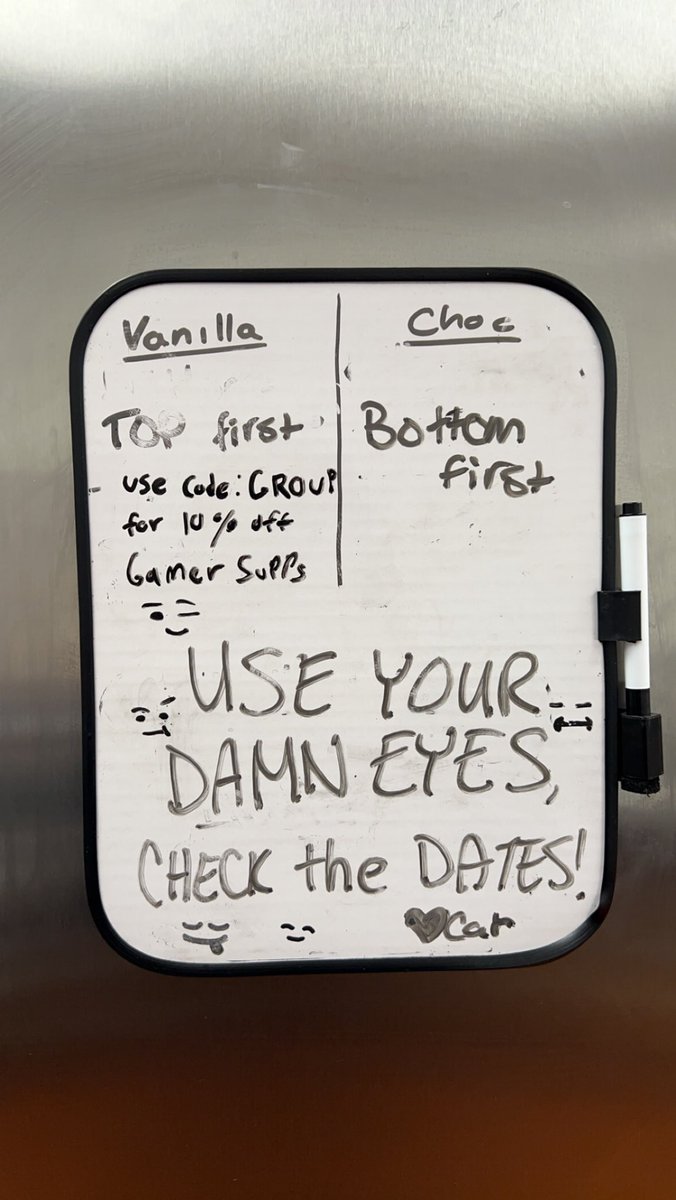 Vanilla
TOP first
use code: GROUP
for 10% off
Gamer Supps
Choc
Bottom
first
USE YOUR
DAMN EYES,
CHECK the DATES!
♥Car